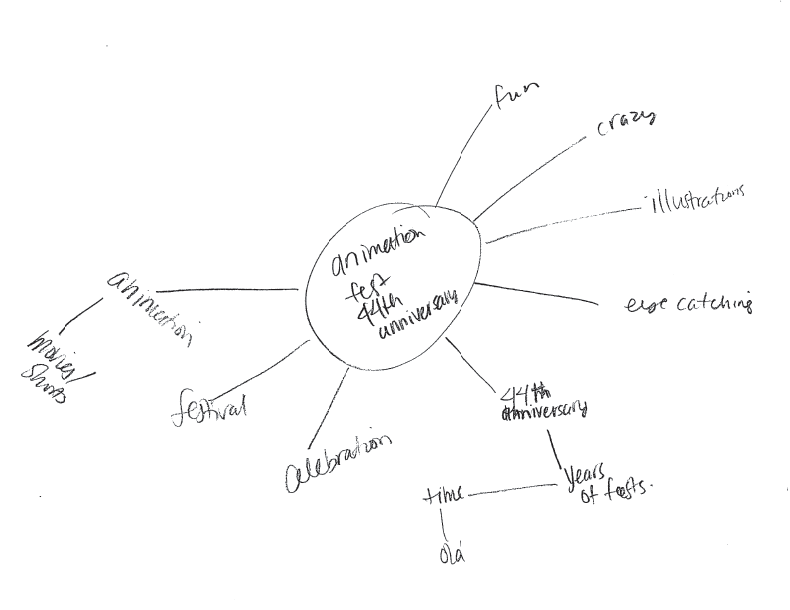 fun
crazy
illustrations
animation
fest
44th
anniversary
animation
eye catching
movies/
shorts
festival
44th
anniversary
celebration
years
of fests.
time
old